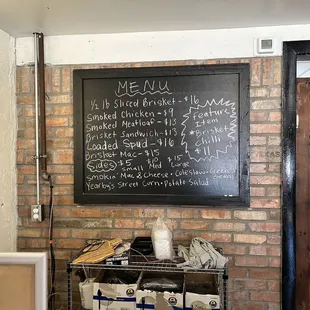 MENU
1/2 lb Sliced Brisket - $16
Smoked Chicken - $9
Smoked Meatloaf - $13
Brisket Sandwich - $13
Loaded Spud - $15
Brisket Mac - $15
Sides $5 $10 $15
Small Med Large
Smokin' Mac & Cheese • Coleslaw • Green
Street Corn • Potato Salad
Feature
Item
*Brisket
Chilli
$11